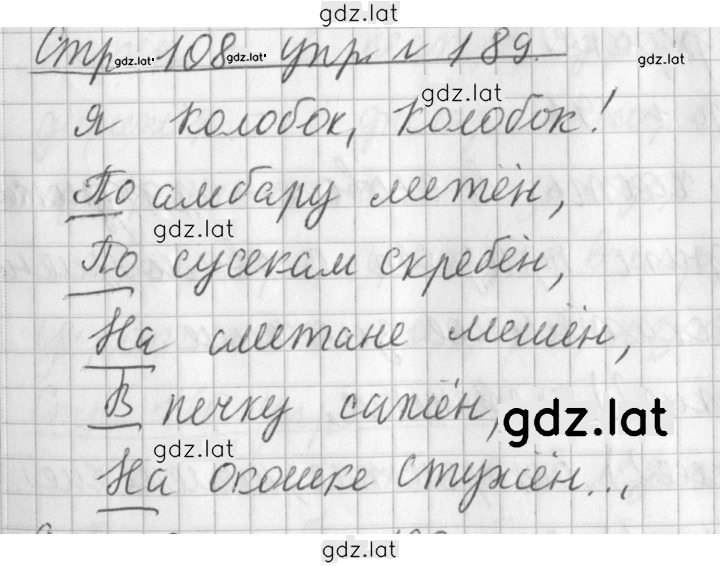 gdz.lat
Стр. 108. упр. № 189.
gdz.lat gdz.lat gdz.lat
gdz.lat
Я колобок, колобок!
По амбару метён,
gdz.lat
По сусекам скребён,
На сметане мешён,
В печку сажён,
gdz.lat
gdz.lat
На окошке стужён...,
gdz.lat